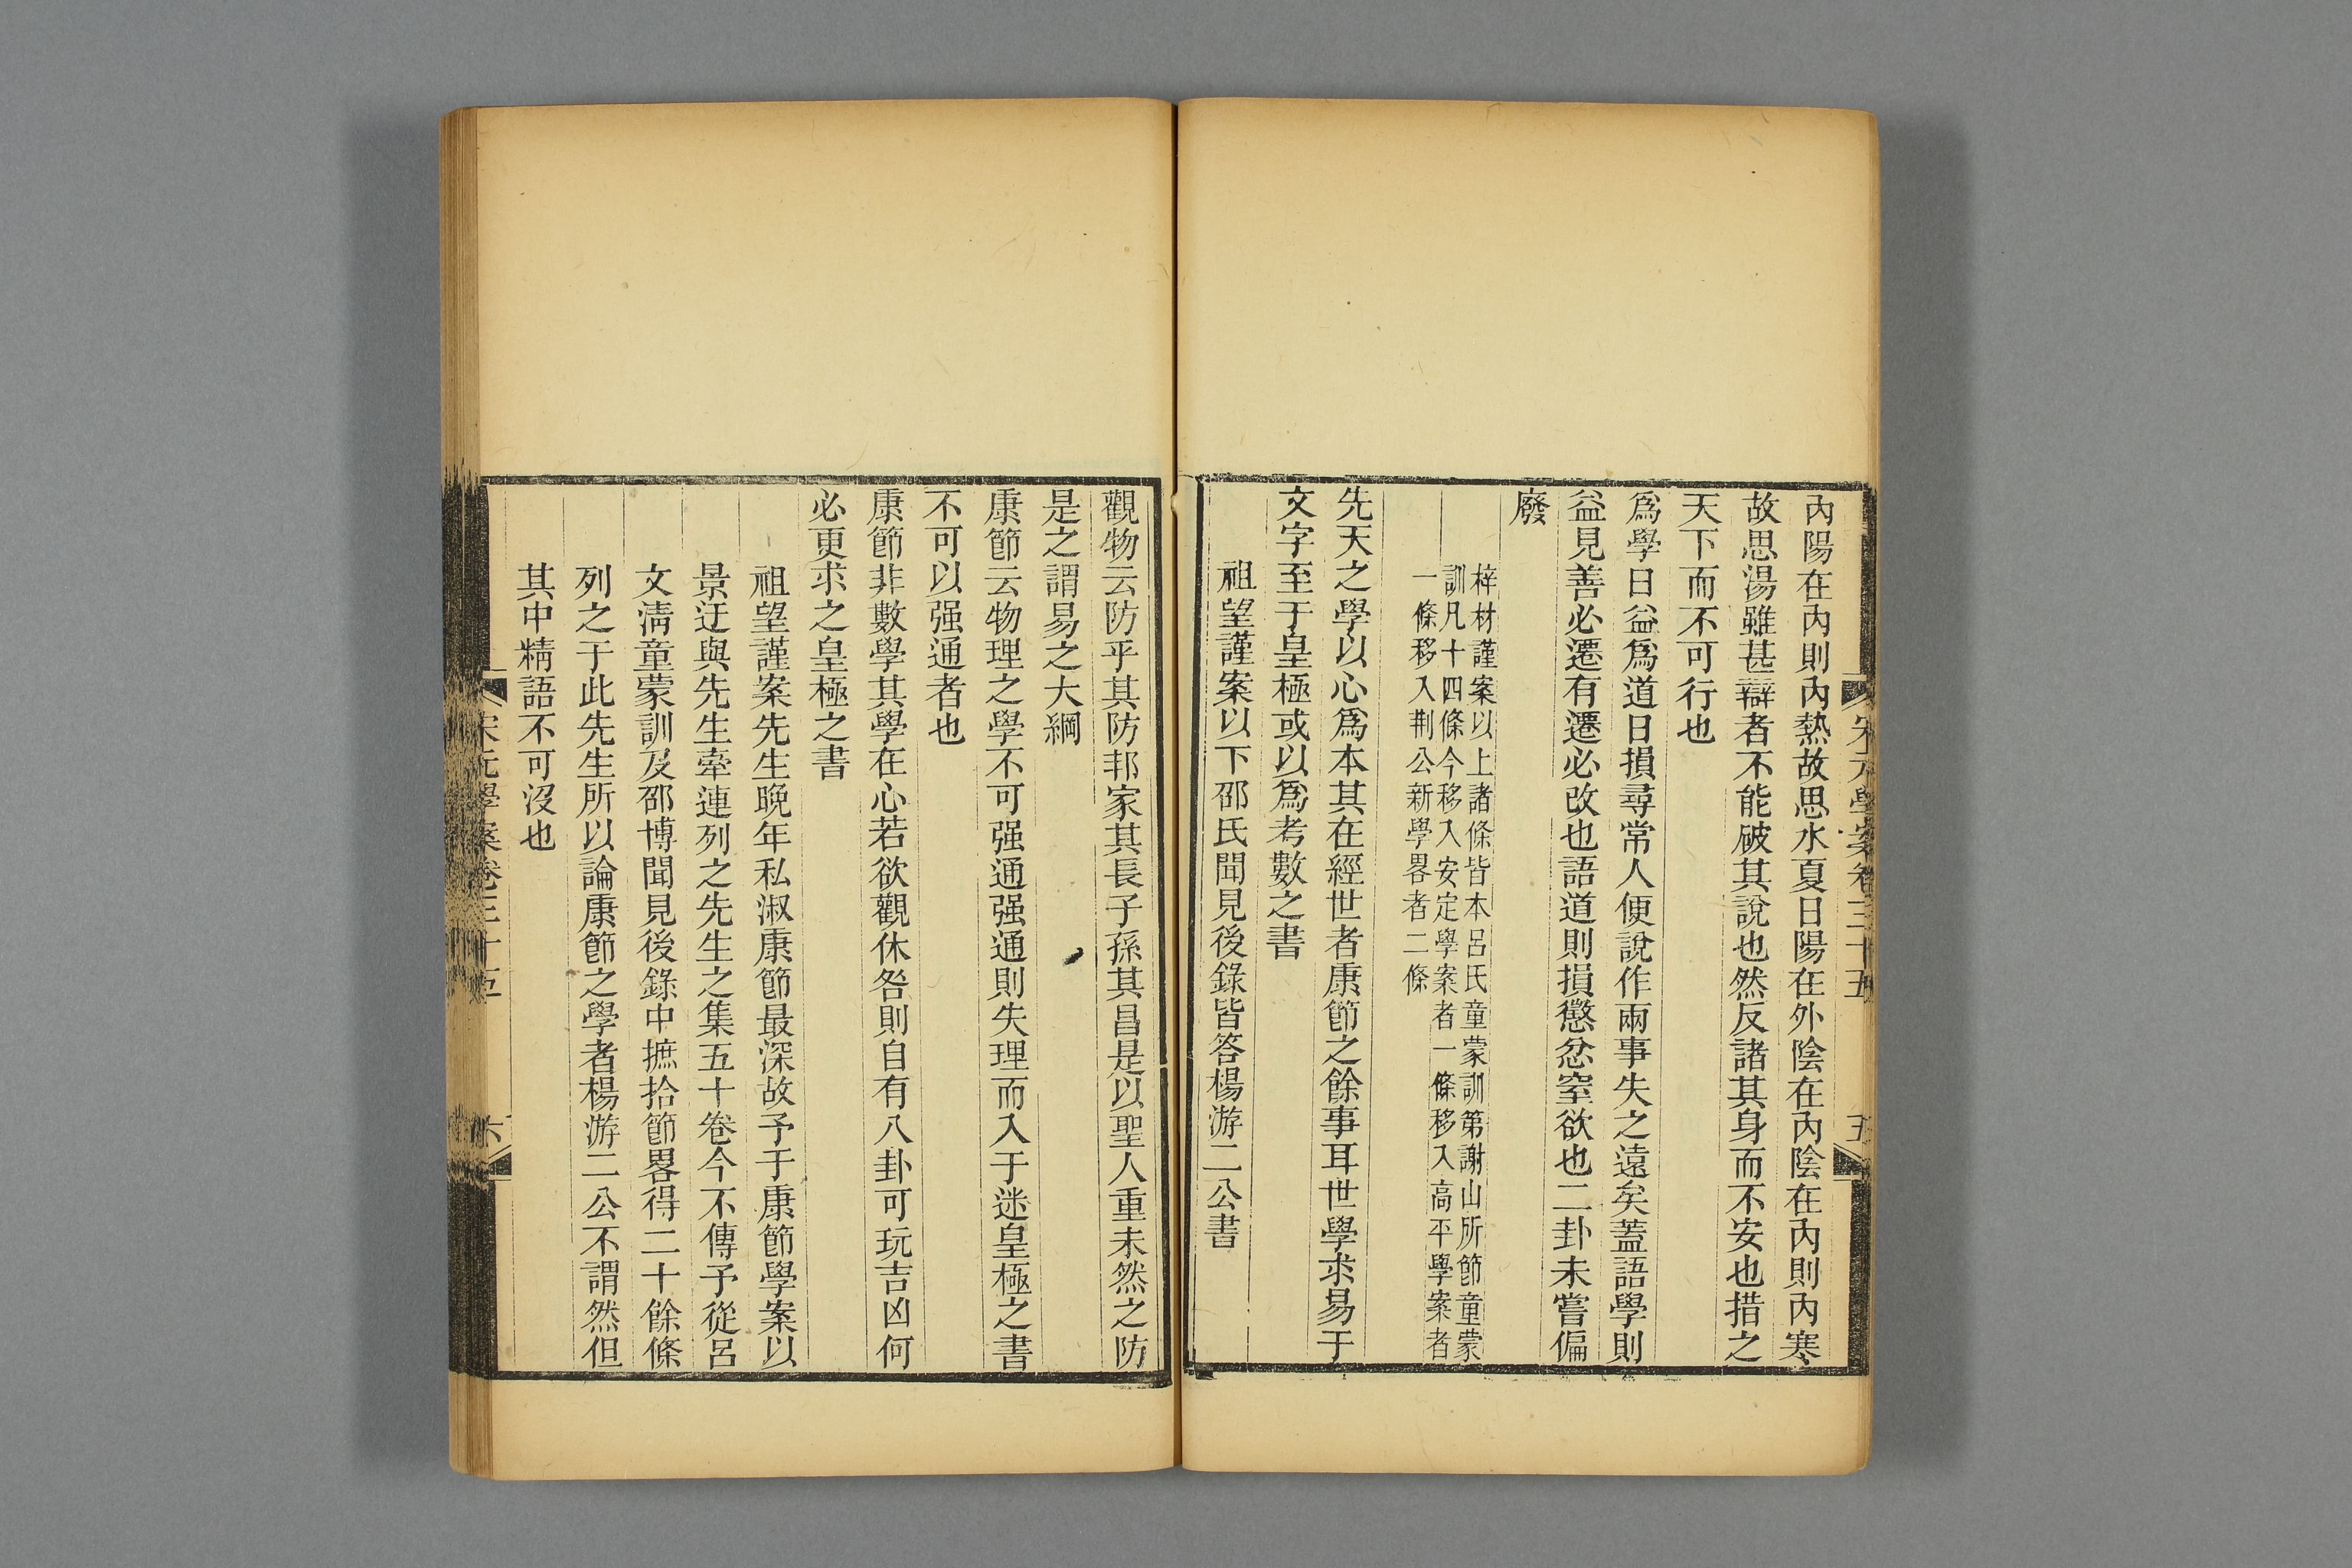 宋元學案卷三十五
五
內陽在內則內熱故思水夏日陽在外陰在內陰在內則內寒
故思湯雖甚辯者不能破其說也然反諸其身而不安也措之
天下而不可行也
爲學日益爲道日損尋常人便說作兩事失之遠矣蓋語學則
益見善必遷有遷必改也語道則損懲忿窒欲也二卦未嘗偏
廢
梓材謹案以上諸條皆本呂氏童蒙訓第謝山所節童蒙
訓凡十四條今移入安定學案者一條移入高平學案者
一條移入荆公新學畧者二條
先天之學以心爲本其在經世者康節之餘事耳世學求易于
文字至于皇極或以爲考數之書
祖望謹案以下邵氏聞見後錄皆答楊游二公書
觀物云防乎其防邦家其長子孫其昌是以聖人重未然之防
是之謂易之大綱
康節云物理之學不可强通强通則失理而入于迷皇極之書
不可以强通者也
康節非數學其學在心若欲觀休咎則自有八卦可玩吉凶何
必更求之皇極之書
祖望謹案先生晚年私淑康節最深故予于康節學案以
景迂與先生牽連列之先生之集五十卷今不傳予從呂
文淸童蒙訓及邵博聞見後錄中摭拾節畧得二十餘條
列之于此先生所以論康節之學者楊游二公不謂然但
其中精語不可沒也
宋元學案卷三十五
六